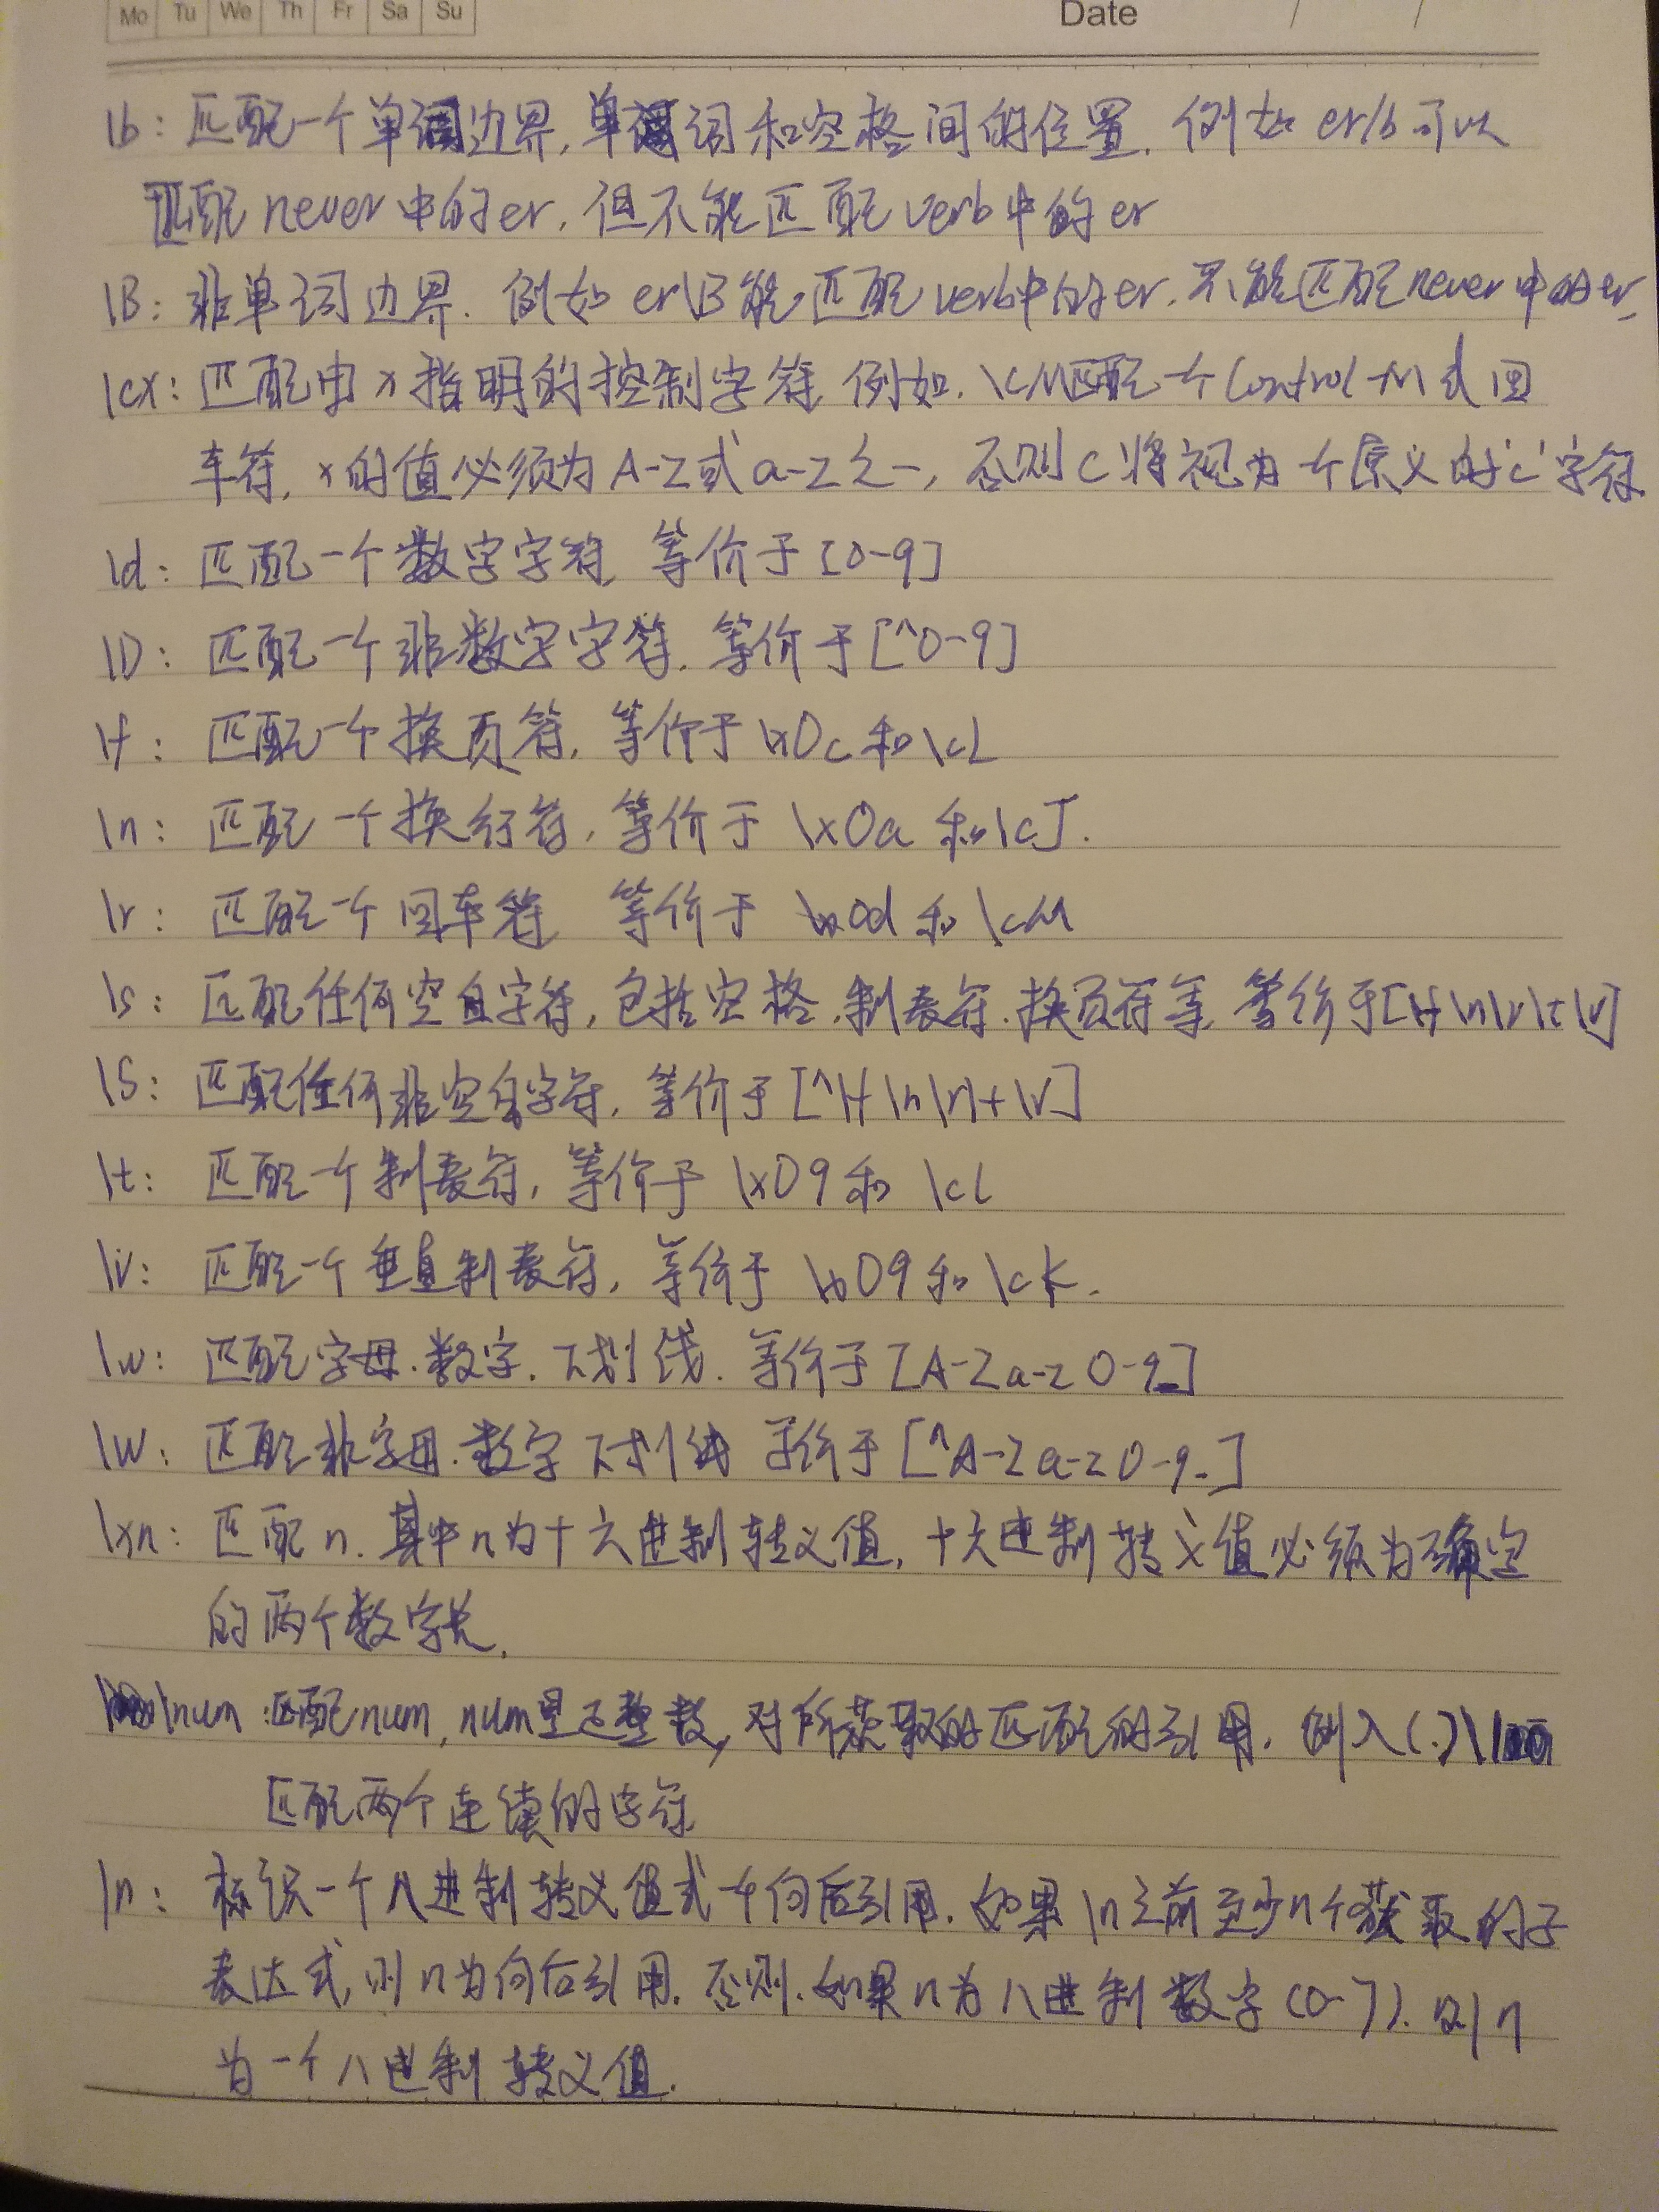 Mo Tu We Th Fr Sa Su Date / /
\b: 匹配一个单词边界,单词和空格间的位置. 例如 er/b 可以
匹配 never 中的 er, 但不能匹配 verb 中的 er
\B: 非单词边界. 例如 er\B 能匹配 verb中的er, 不能匹配 never 中的er,
\cx: 匹配由 x 指明的控制字符 例如, \cM匹配一个Control-M或回
车符, x的值必须为 A-Z或 a-z之一, 否则 c 将视为一个原义的'c'字符
\d: 匹配一个数字字符 等价于 [0-9]
\D: 匹配一个非数字字符. 等价于[^0-9]
\f: 匹配一个换页符, 等价于 \x0c 和 \cL
\n: 匹配一个换行符, 等价于 \x0a 和 \cJ.
\r: 匹配一个回车符 等价于 \x0d 和 \cM
\s: 匹配任何空白字符, 包括空格,制表符.换页符等, 等价于[\f\n\r\t\v]
\S: 匹配任何非空白字符, 等价于 [^\f\n\r\t\v]
\t: 匹配一个制表符, 等价于 \x09 和 \cl
\v: 匹配一个垂直制表符, 等价于 \x09 和 \cK.
\w: 匹配字母.数字.下划线. 等价于 [A-Za-z0-9_]
\W: 匹配非字母.数字 下划线 等价于 [^A-Za-z0-9_]
\xn: 匹配 n. 其中n为十六进制转义值, 十六进制转义值必须为确定
的两个数字长.
\num: 匹配num, num是正整数, 对所获取的匹配的引用. 例入(.)\1
匹配两个连续的字符
\n: 标识一个八进制转义值或一个向后引用. 如果 \n之前至少n个获取的子
表达式, 则 n为向后引用. 否则. 如果 n为八进制数字(0-7). 则n
为一个八进制转义值.